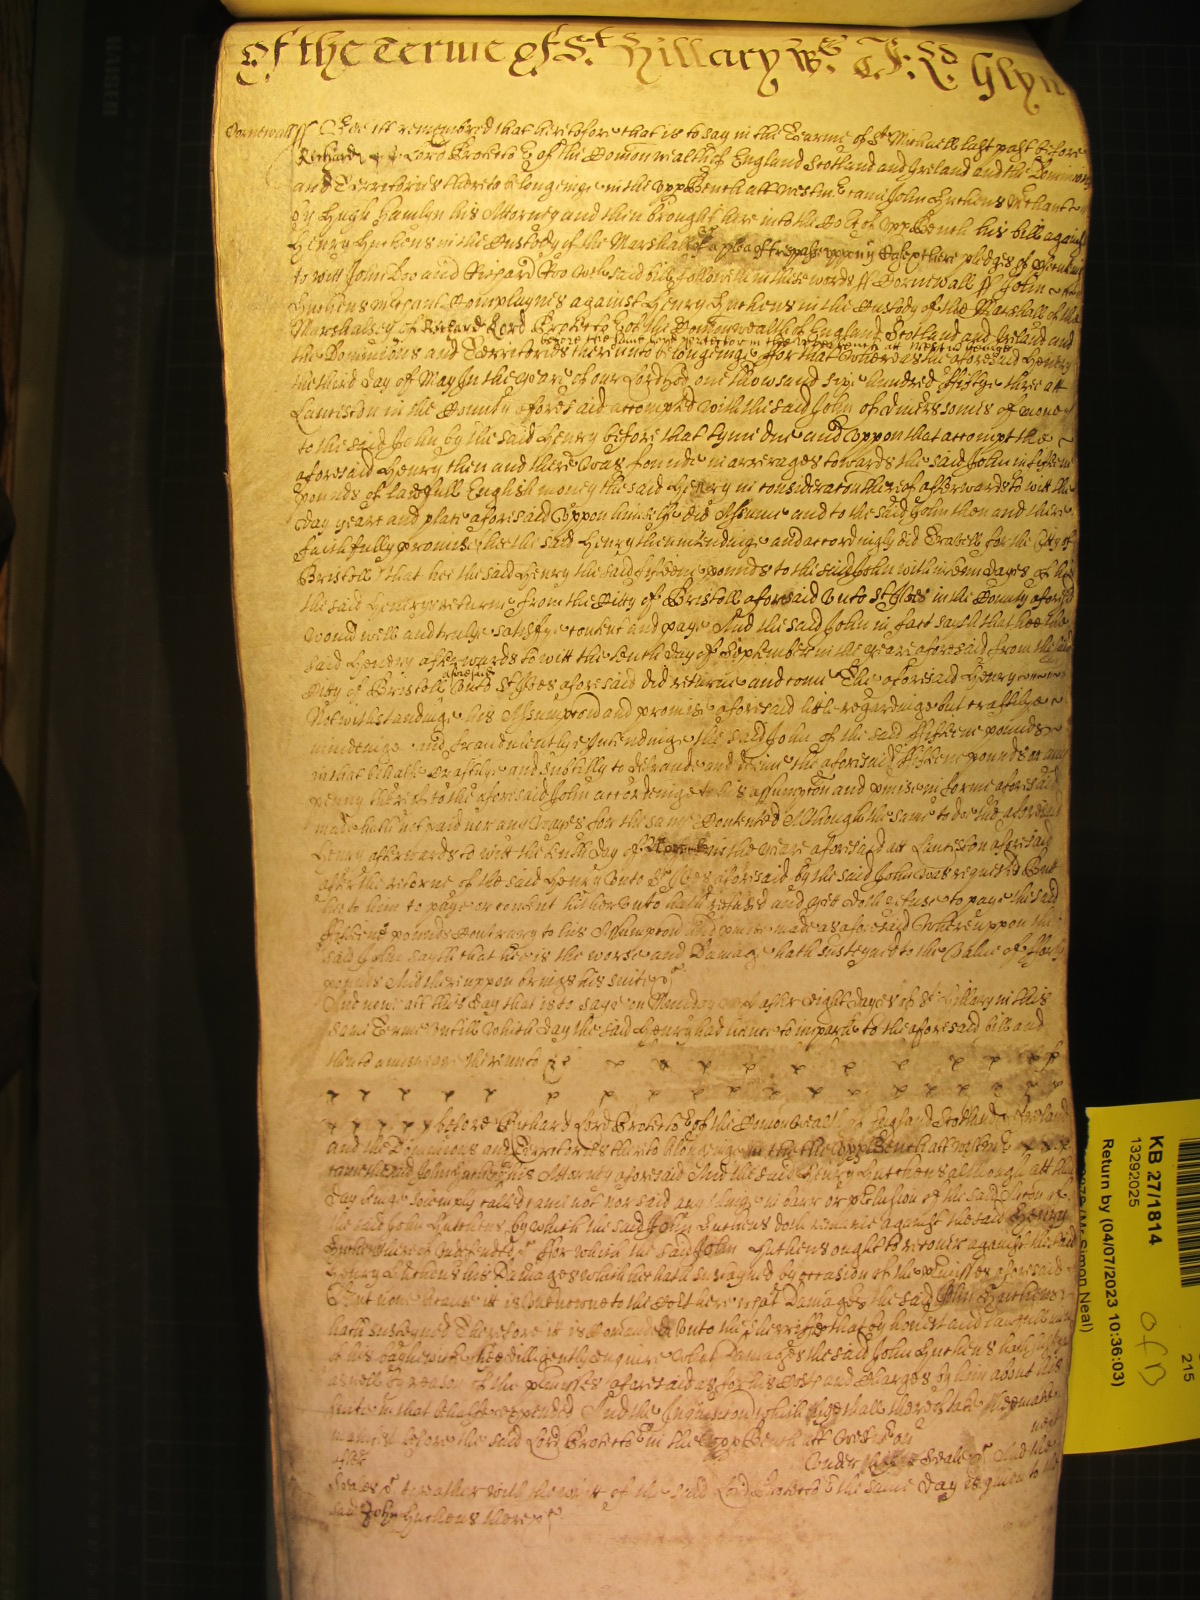 Of the Terme of St. Hillary
Cornewall ss Bee itt remembred that heretofore that is to say in the Tearme of St Michaell last past before
Richard Lord Protector of the Comon wealth of England Scotland and Ireland and the Dominions
and Territories thereto belonginge in the upp Bench att Westm came John Huchens Merchant
by Hugh Hamlyn his Attorney and then brought here into the Cort of upp Bench his bill against
Henry Huchens in the Custody of the Marshall of a plea of trespasse uppon Case there pledges of
to witt John Doo and Richard Roo wch said bill followeth in these words ss Cornewall ss John
Huchens mercant Complaynes against Henry Huchens in the Custody of the Marshall of the
Marshalsey of Richard Lord Protector of the Comonwealth of England Scotland and Ireland and
the Dominions and Territories thereunto belonginge For that Whereas the aforesaid Henry
the third day of May In the yeare of our Lord God one thowsand sixe hundred Fiftye three att
Lanceston in the County aforesaid accompted with the said John of divers somes of money
to the said John by the said Henry before that tyme due and uppon that accompt the
aforesaid Henry then and there was founde in arrerages towards the said John in fifteene
pounds of lawfull English money the said Henry in consideracon thereof afterwards to witt the
day yeare and place aforesaid uppon himselfe did Assume and to the said John then and there
faithfully promise hee the said Henry then intendinge and accordingly did Travell for the City of
Bristoll that hee the said Henry the said fifteene pounds to the said John within days of his
the said Henryes returne from the Citty of Bristoll aforesaid unto St Ives in the County aforesaid
would well and trulye satisfye content and paye And the said John in fact saith that hee the
said Henry afterwards to witt the tenth day of September in the yeare aforesaid from the said
Citty of Bristoll aforesaid unto St Ives aforesaid did returne and come The aforesaid Henry
Notwithstandinge his Assumpcon and promise aforesaid little regardinge but craftilye
and fraudulentlye Intendinge the said John of the said Fifteene pounds
in that behalfe Craftilye and subtilly to defraude and deceive the aforesaid Fifteene pounds or any
penny thereof to the aforesaid John accordinge to his assumpcon and pmise in forme aforesaid
made hath not paid nor any wayes for the same Contented Although the same to doe hee aforesaid
Henry afterwards to witt the tenth day of in the yeare aforesaid att Lanceston aforesaid
after the returne of the said Henry unto St Ives aforesaid by the said John was requested But
to him to paye or content hitherto hath refused and yett doth refuse to paye the said
Fifteene pounds Contrary to his Assumpcon and pmise made as aforesaid Whereuppon the
said John saith that hee is the worse and Damage hath susteyned to the value of
pounds And thereuppon brings his suite
And now att this day that is to saye on Munday next after eight dayes of St Hillary in this
same Terme untill which day the said Henry had licence to imparle to the aforesaid bill and
then to answeare thereunto
before Richard Lord Protector of the Comonwealth of England Scotland Ireland
and the Dominions and Territories thereto belonginge in the upp Bench att Westm
came the said John Huchens by his Attorney aforesaid And the said Henry Huchens although att the
day beinge solemply called came not nor said any thinge in barr or preclusion of the said Action of
the said John Huchens by which the said John Huchens doth remaine against the said Henry
Huchens thereof undefended For which the said John Huchens ought to recover against the said
Henry Huchens his Damages which hee hath susteyned by occasion of the premisses aforesaid
But now because itt is unknowne to the Cort here what Damages the said John Huchens
hath susteyned Therefore it is Comanded unto the Sherriffe that by honest and lawfull
of his baywicke hee dilligently enquire what Damages the said John Huchens hath
aswell by reason of the premisses aforesaid as for his Costs and Charges by him about his
suite in that behalfe expended And the Inquisicon which hee shall thereof take
before the said Lord Protector in the upp Bench att Westm on next
after under Seale And the
Seales together with the writt of the said Lord Protector the same day is given to the
said John Huchens there
KB 27/1814
13292025
Return by (04/07/2023 10:36:03)
(Mr Simon Neal)
215